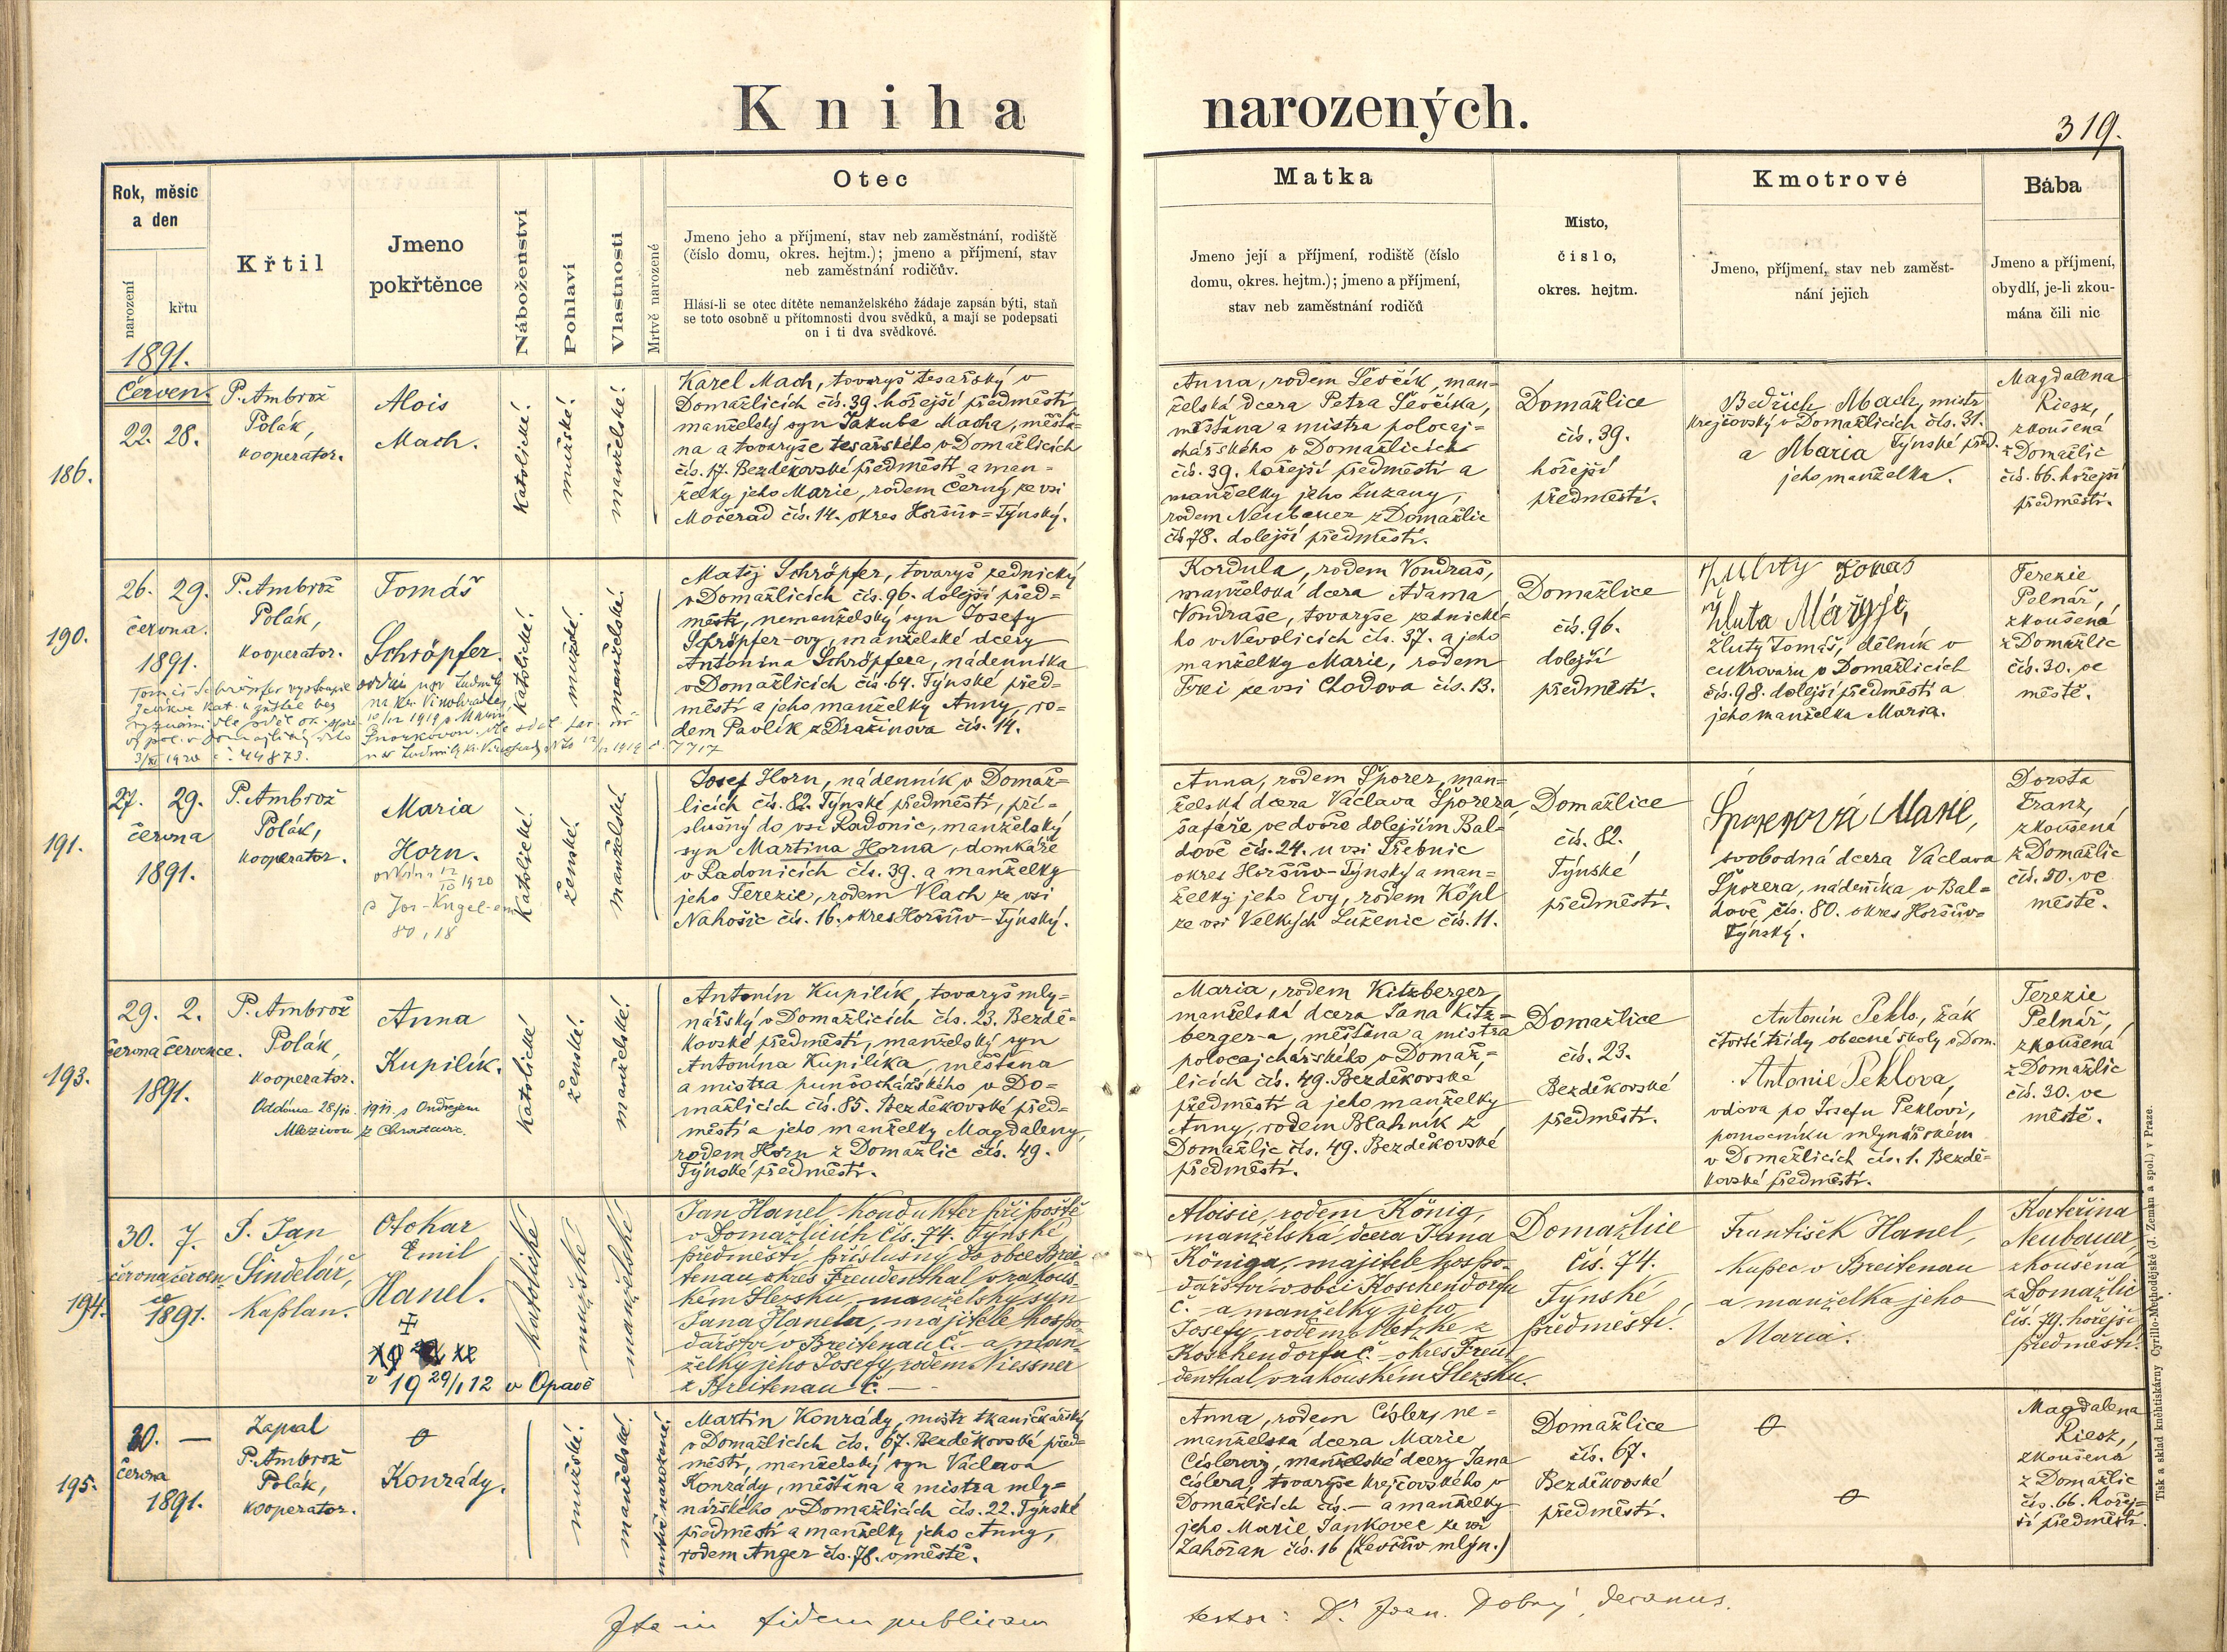 Kniha narozených.
319.
Rok, měsíc
a den
narození
křtu
Křtil
Jmeno
pokřtěnce
Náboženství
Pohlaví
Vlastnosti
Mrtvě narozené
Otec
Jmeno jeho a příjmení, stav neb zaměstnání, rodiště
(číslo domu, okres. hejtm.); jmeno a příjmení, stav
neb zaměstnání rodičův.
Hlásí-li se otec dítěte nemanželského žádaje zapsán býti, staň
se toto osobně u přítomnosti dvou svědků, a mají se podepsati
on i ti dva svědkové.
Matka
Jmeno její a příjmení, rodiště (číslo
domu, okres. hejtm.); jmeno a příjmení,
stav neb zaměstnání rodičů
Místo,
číslo,
okres. hejtm.
Kmotrové
Jmeno, příjmení, stav neb zaměst-
nání jejich
Bába
Jmeno a příjmení,
obydlí, je-li zkou-
mána čili nic
1891.
Červen.
186.
22. 28.
P. Ambrož
Polák,
kooperator.
Alois
Mach.
Katolické.
mužské.
manželské.
Karel Mach, tovaryš tesařský v
Domažlicích čís. 39. hořejší předměstí
manželský syn Jakuba Macha, měšťa=
na a tovaryše tesařského v Domažlicích
čís. 17. Bezděkovské předměstí a man=
želky jeho Marie, rodem Černý ze vsi
Močerad čís. 14. okres Horšův=Týnský.
Anna, rodem Ševčík, man=
želská dcera Petra Ševčíka,
měšťana a mistra polocaj=
chářského v Domažlicích
čís. 39. hořejší předměstí a
manželky jeho Zuzany,
rodem Neubauer z Domažlic
čís 78. dolejší předměstí.
Domažlice
čís. 39.
hořejší
předměstí.
Bedřich Mach, mistr
krejčovský v Domažlicích čís. 31.
a Maria Týnské před.
jeho manželka.
Magdalena
Riesz,
zkoušená
z Domažlic
čís. 66. hořejší
předměstí.
190.
26. 29.
června.
1891.
P. Ambrož
Polák,
kooperator.
Tomáš
Schröpfer.
Katolické.
mužské.
manželské.
Matěj Schröpfer, tovaryš zednický
v Domažlicích čís. 96. dolejší před=
městí, nemanželský syn Josefy
Schröpfer-ovy, manželské dcery
Antonína Schröpfera, nádenníka
v Domažlicích čís. 64. Týnské před=
městí a jeho manželky Anny, ro=
dem Pavlík z Dražinova čís. 14.
Kordula, rodem Vondraš,
manželská dcera Adama
Vondraše, tovaryše zednické=
ho v Nevolicích čís. 37. a jeho
manželky Marie, rodem
Frei ze vsi Chodova čís. 13.
Domažlice
čís. 96.
dolejší
předměstí.
Žlutý Tomáš, dělník v
cukrovaru v Domažlicích
čís. 98. dolejší předměstí a
jeho manželka Maria.
Terezie
Pelnář,
zkoušená
z Domažlic
čís. 30. ve
městě.
191.
27. 29.
června
1891.
P. Ambrož
Polák,
kooperator.
Maria
Horn.
Katolické.
ženské.
manželské.
Josef Horn, nádenník v Domaž=
licích čís. 82. Týnské předměstí, pří=
slušný do vsi Radonic, manželský
syn Martina Horna, domkáře
v Radonicích čís. 39. a manželky
jeho Terezie, rodem Vlach ze vsi
Nahošic čís. 16. okres Horšův-Týnský.
Anna, rodem Šporer, man=
želská dcera Václava Šporera,
šafáře ve dvoře dolejším Bal=
dově čís. 24. u vsi Třebnic
okres Horšův-Týnský a man=
želky jeho Evy, rodem Köpl
ze vsi Velkých Luženic čís. 11.
Domažlice
čís. 82.
Týnské
předměstí.
Šporerová Marie,
svobodná dcera Václava
Šporera, nádenníka v Bal=
dově, čís. 80. okres Horšův=
Týnský.
Dorota
Franz,
zkoušená
z Domažlic
čís. 50. ve
městě.
193.
29. 2.
června července.
1891.
P. Ambrož
Polák,
kooperator.
Anna
Kupilík.
Oddána 28/10. 1911. s Ondřejem
Mlezivou z Chrastavic.
Katolické
ženské.
manželské.
Antonín Kupilík, tovaryš mly=
nářský v Domažlicích čís. 23. Bezdě=
kovské předměstí, manželský syn
Antonína Kupilíka, měšťana
a mistra punčochářského v Do=
mažlicích čís. 85. Bezděkovské před=
městí a jeho manželky Magdaleny,
rodem Horn z Domažlic čís. 49.
Týnské předměstí.
Maria, rodem Kitzberger,
manželská dcera Jana Kitz=
berger-a, měšťana a mistra
polocajchářského v Domaž=
licích čís. 49. Bezděkovské
předměstí a jeho manželky
Anny, rodem Blahník z
Domažlic čís. 49. Bezděkovské
předměstí.
Domažlice
čís. 23.
Bezděkovské
předměstí.
Antonín Peklo, žák
čtvrté třídy obecné školy v Dom.
Antonie Peklova,
vdova po Josefu Peklovi,
pomocníku mlynářském
v Domažlicích čís. 1. Bezdě=
kovské předměstí.
Terezie
Pelnář,
zkoušená
z Domažlic
čís. 30. ve
městě.
194.
30. 7.
června červen
ce
1891.
P. Jan
Šindelář,
Kaplan.
Otokar
Emil
Hanel.
v 19 29/1 12 v Opavě
Katolické
mužské
manželské
Jan Hanel, konduktér při poště
v Domažlicích čís. 74. Týnské
předměstí, příslušný do obce Brei
tenau okres Freudenthal v rakous=
kém Slezsku, manželský syn
Jana Hanela, majitele hospo=
dářství v Breitenau č. - a man=
želky jeho Josefy, rodem Niessner
z Breitenau č. -
Aloisie, rodem König,
manželská dcera Jana
Königa, majitele hospo=
dářství v obci Koschendorfu
č. - a manželky jeho
Josefy, rodem Metzke z
Koschendorfu č. - okres Freu=
denthal v rakouském Slezsku.
Domažlice
čís. 74.
Týnské
předměstí.
František Hanel,
kupec v Breitenau
a manželka jeho
Maria.
Kateřina
Neubauer
zkoušená
z Domažlic
čís. 79. hořejší
předměstí.
195.
30. —
června
1891.
Zapsal
P. Ambrož
Polák,
kooperator.
Konrády.
mužské.
manželské.
mrtvě narozené.
Martin Konrády, mistr tkaničkářský
v Domažlicích čís. 67. Bezděkovské před=
městí, manželský syn Václava
Konrády, měšťana a mistra mly=
nářského v Domažlicích čís. 22. Týnské
předměstí a manželky jeho Anny,
rodem Anger čís. 78. v městě.
Anna, rodem Císler, ne=
manželská dcera Marie
Císlerovy, manželské dcery Jana
Císlera, tovaryše krejčovského v
Domažlicích čís. — a manželky
jeho Marie Jankovec ze vsi
Zahořan čís. 16 (Ševčův mlýn.)
Domažlice
čís. 67.
Bezděkovské
předměstí.
Magdalena
Riesz,
zkoušená
z Domažlic
čís. 66. hořej=
ší předměstí.
Ita in fidem publicam
testor: Dr Joan. Dobrý, decanus.
Tisk a sklad knihtiskárny Cyrillo-Methodějské (J. Zeman a spol.) v Praze.